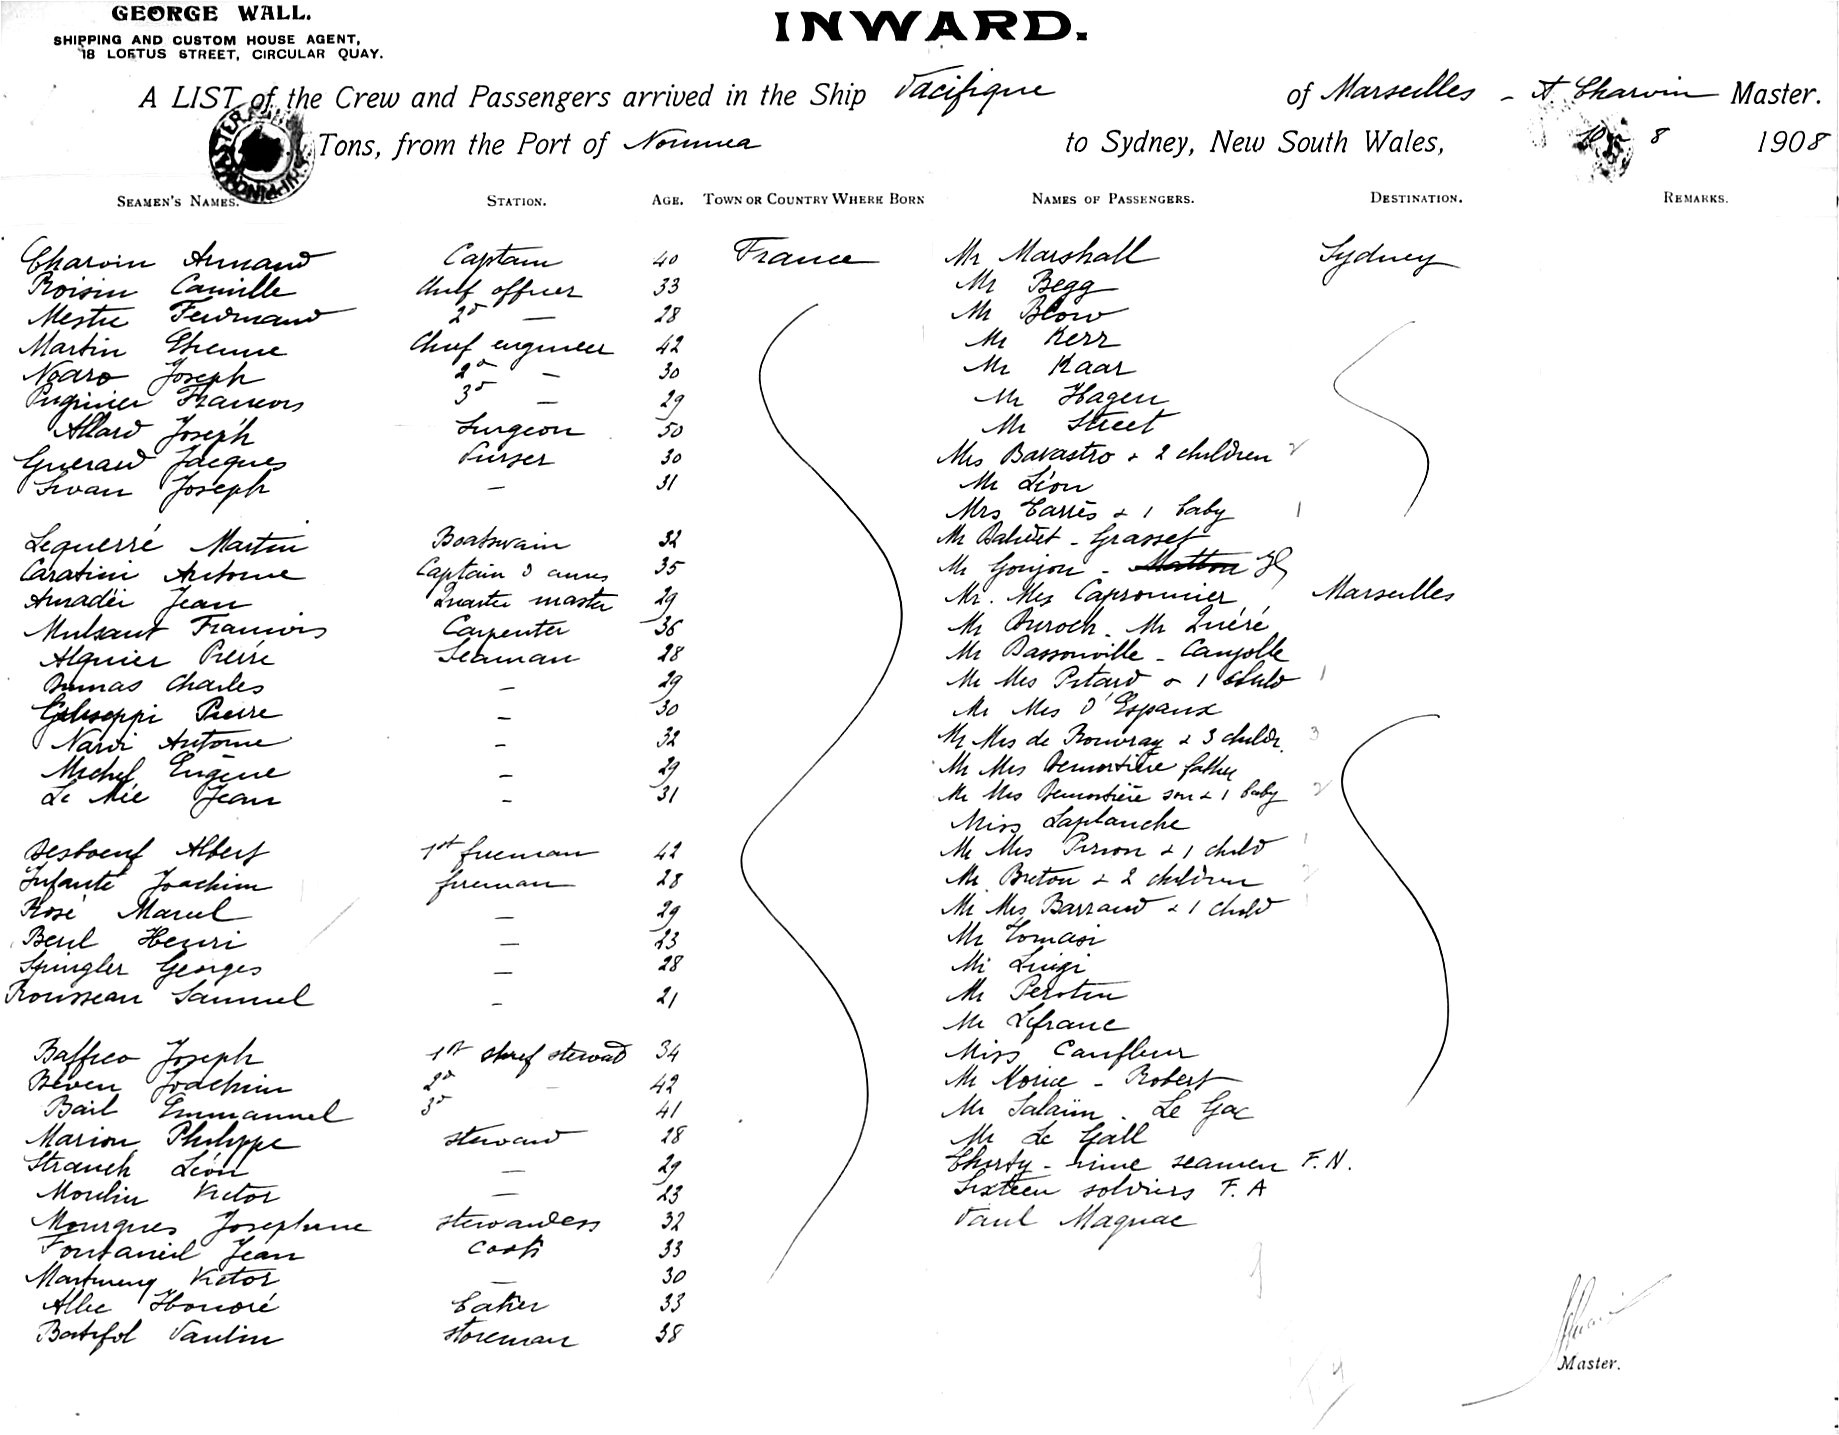 GEORGE WALL.
SHIPPING AND CUSTOM HOUSE AGENT,
18 LOFTUS STREET, CIRCULAR QUAY.
INWARD.
A LIST of the Crew and Passengers arrived in the Ship Pacifique of Marseilles - A. Charvin Master.
Tons, from the Port of Noumea to Sydney, New South Wales, 8 1908
SEAMEN'S NAMES. STATION. AGE. TOWN OR COUNTRY WHERE BORN NAMES OF PASSENGERS. DESTINATION. REMARKS.
Charvin Armand Captain 40 France Mr Marshall Sydney
Roisin Camille Chief officer 33 Mr Begg
Mestre Ferdinand 2d — 28 Mr Blow
Martin Etienne Chief engineer 42 Mr Kerr
Nodro Joseph 2d — 30 Mr Kaar
Puginier Francois 3d — 29 Mr Hagen
Allard Joseph Surgeon 50 Mr Street
Guerard Jacques Purser 30 Mrs Bavastro & 2 children 2
Sivan Joseph — 31 Mr Léon
Mrs Carrès & 1 baby 1
Lequerré Martin Boatswain 32 Mr - Grasset
Caratini Antoine Captain d'armes 35 Mr Goujon - Matton
Amadéi Jean Quarter master 29 Mr. Mrs Capronnier Marseilles
Mulsant Francois Carpenter 36 Mr Duroch. Mr Quéré
Alquier Pierre Seaman 28 Mr Dassonville - Canjolle
Dumas Charles — 29 Mr Mrs Pitard & 1 child 1
Giuseppi Pierre — 30 Mr Mrs d'Espaux
Nardi Antoine — 32 Mr Mrs de Rouvray & 3 childr. 3
Michel Eugène — 29 Mr Mrs Demortière father
Le Mée Jean — 31 Mr Mrs Demortière son & 1 baby 2
Miss Laplanche
Desboeuf Albert 1st fireman 42 Mr Mrs Pirion & 1 child 1
Infanté Joachim fireman 28 Mr Breton & 2 children 2
Rosé Marcel — 29 Mr Mrs Barraud & 1 child 1
Beul Henri — 23 Mr Tomasi
Spingler Georges — 28 Mr Luigi
Rousseau Samuel — 21 Mr Perotin
Mr Lefranc
Baffico Joseph 1st chief steward 34 Miss Caufleur
Béven Joachim 2d — 42 Mr Morice - Robert
Bail Emmanuel 3d 41 Mr Salaün. Le Gac
Marion Philippe steward 28 Mr Le Gall
Strauch Léon — 29 Thirty-nine seamen F. N.
Moulin Victor — 23 Sixteen soldiers F. A
Mourgues Josephine stewardess 32 Paul Magnac
Fontanieil Jean Cook 33
Victor — 30
Albe Honoré baker 33
Batifol Paulin storeman 38
Master.